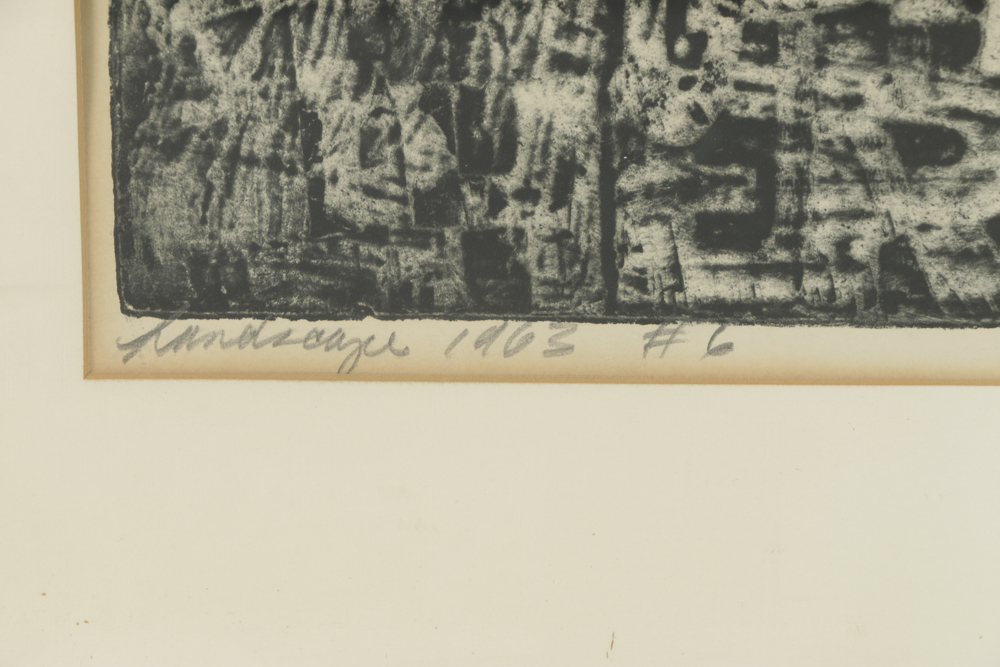 Landscape 1963 #6